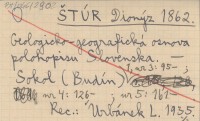 ŠTÚR Dionýz 1862.
Geologicko-geografická osnova
polohopisu Slovenska. –
Sokol (Budín) 1, nr 3: 95–
nr 4: 126– nr 5: 161–
Rec.: Urbánek L. 1935.